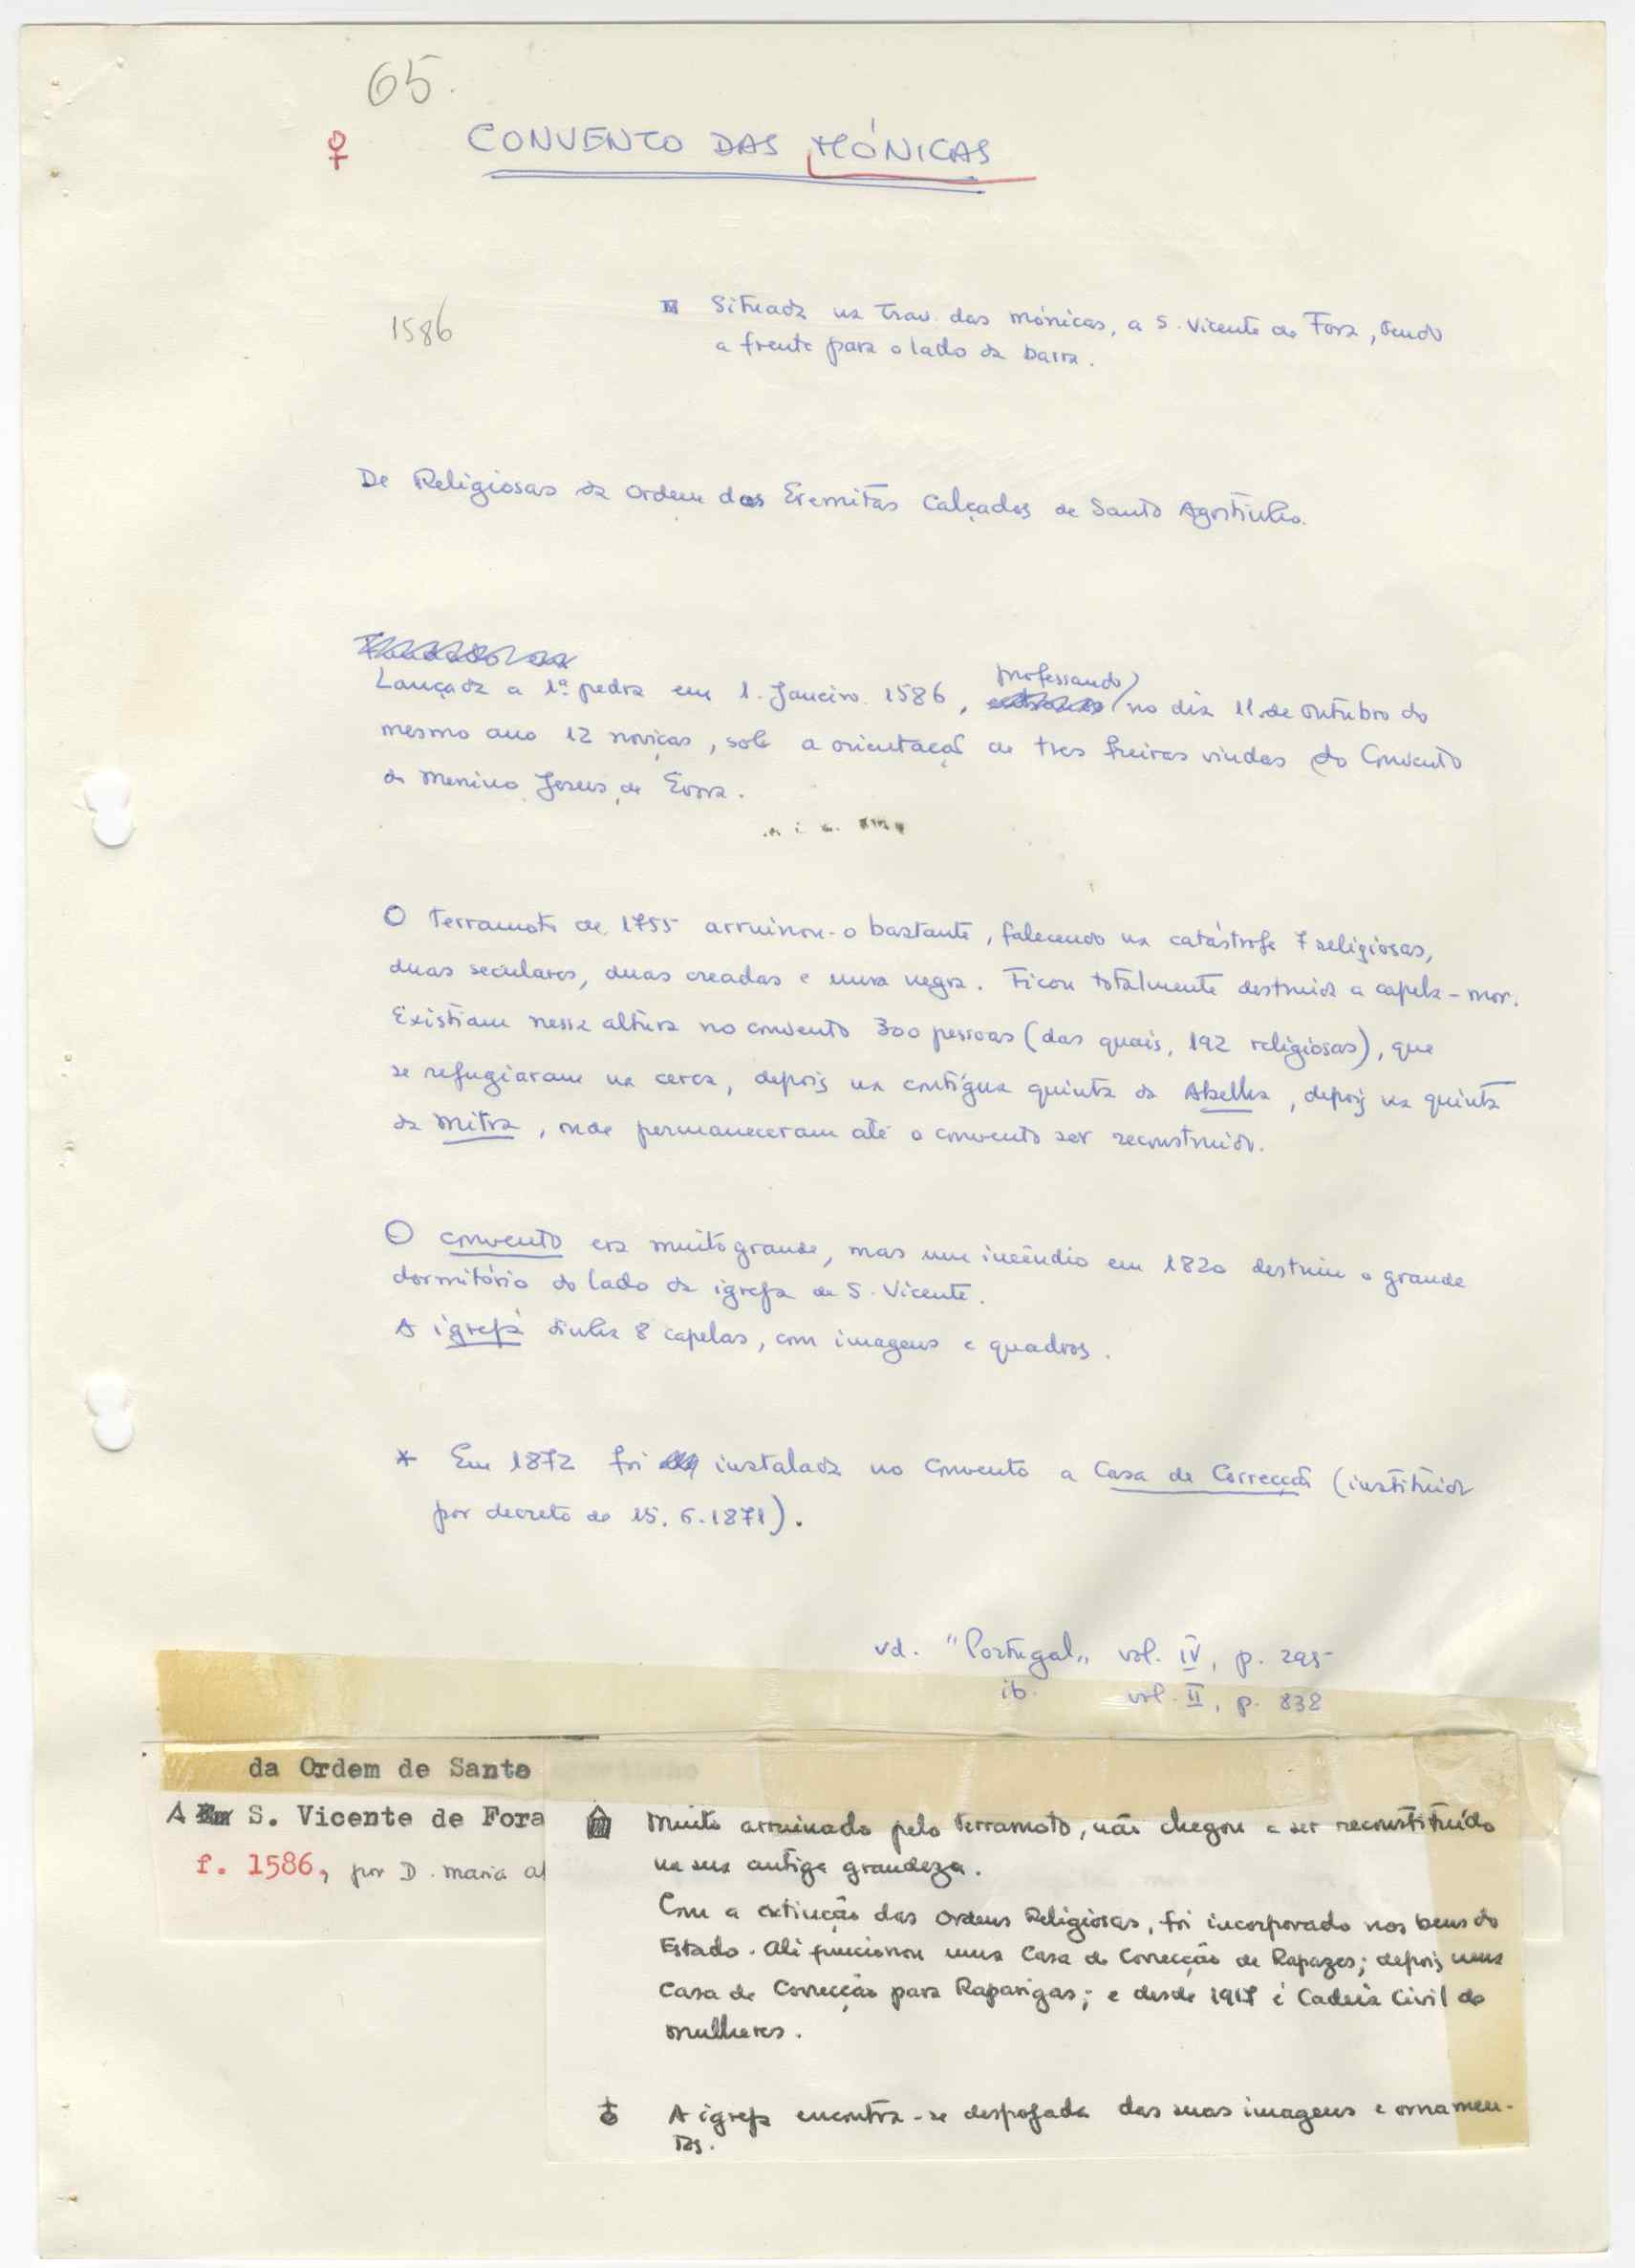 65.
♀ CONVENTO DAS MÓNICAS
1586
Situada na Trav. das Mónicas, a S. Vicente de Fora, tendo
a frente para o lado da barra.
De Religiosas da Ordem dos Eremitas Calçados de Santo Agostinho.
professando
Lançada a 1ª pedra em 1. Janeiro. 1586, no dia 11 de outubro do
mesmo ano 12 noviças, sob a orientação de tres freiras vindas do Convento
do Menino Jesus de Évora.
O terramoto de 1755 arruinou-o bastante, falecendo na catástrofe 7 religiosas,
duas seculares, duas creadas e uma negra. Ficou totalmente destruida a capela-mor.
Existiam nessa altura no convento 300 pessoas (das quais, 192 religiosas), que
se refugiaram na cerca, depois na contígua quinta da Abelha, depois na quinta
da Mitra, onde permaneceram até o convento ser reconstruido.
O convento era muito grande, mas um incêndio em 1820 destruiu o grande
dormitório do lado da igreja de S. Vicente.
A igreja tinha 8 capelas, com imagens e quadros.
* Em 1872 foi instalada no Convento a Casa de Correcção (instituida
por decreto de 15.6.1871).
vd. "Portugal" vol. IV, p. 295
ib. vol. II, p. 838
da Ordem de Santo Agostinho
A S. Vicente de Fora
f. 1586, por D. Maria
Muito arruinado pelo terramoto, não chegou a ser reconstituído
na sua antiga grandeza.
Com a extinção das Ordens Religiosas, foi incorporado nos bens do
Estado. Ali funcionou uma Casa de Correcção de Rapazes; depois uma
Casa de Correcção para Raparigas; e desde 1917 é Cadeia Civil de
Mulheres.
A igreja encontra-se despojada das suas imagens e ornamen-
tos.